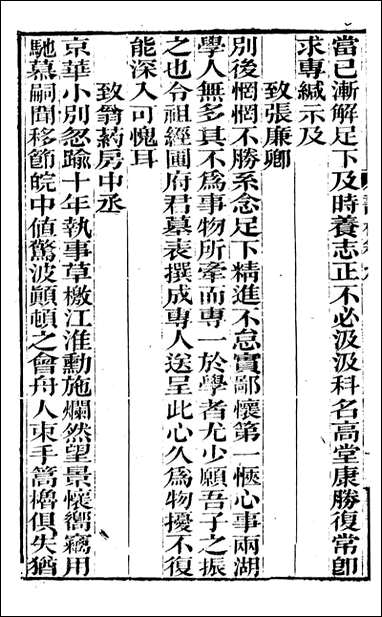 當已漸解足下及時養志正不必汲汲科名高堂康勝復常卽
求專緘示及
致張廉卿
別後惘惘不勝系念足下精進不怠實鄙懷第一愜心事兩湖
學人無多其不爲事物所牽而專一於學者尤少願吾子之振
之也令祖經圃府君墓表撰成專人送呈此心久爲物擾不復
能深入可愧耳
致翁葯房中丞
京華小別忽踰十年執事草檄江淮勳施爛然望景懷嚮竊用
馳慕嗣聞移節皖中值驚波顚頓之會舟人束手篙櫓俱失猶